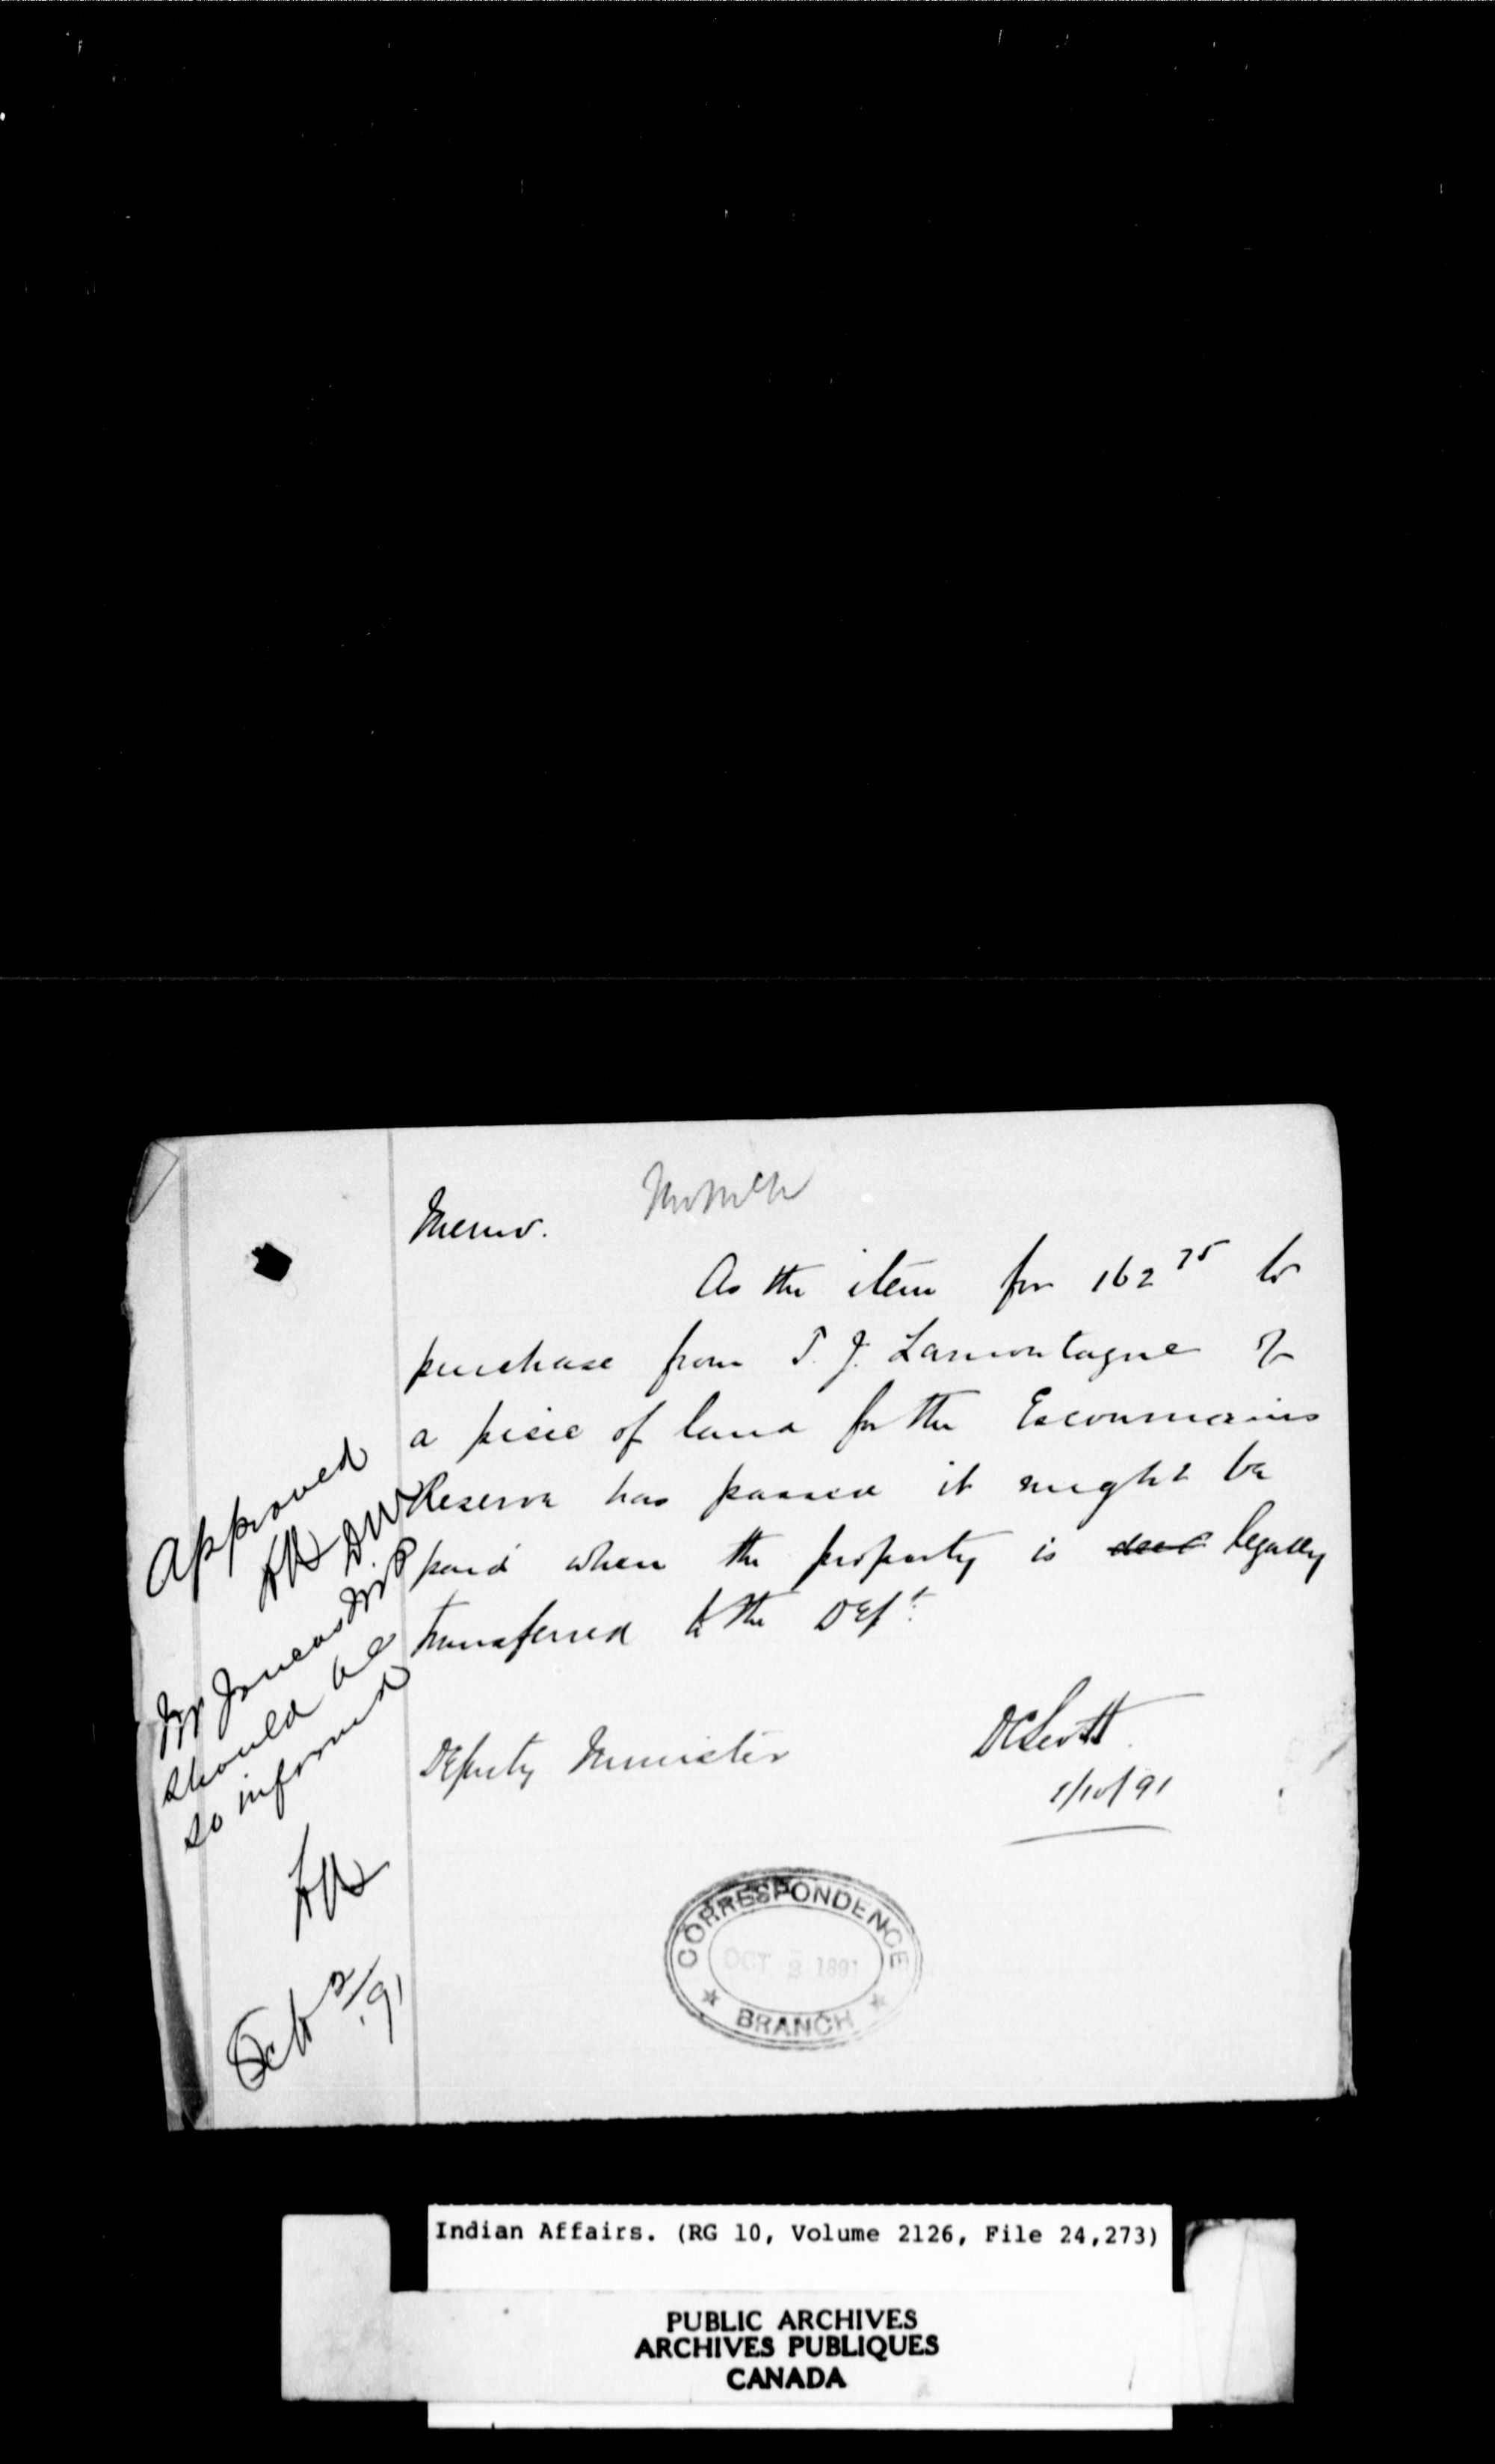 Memo.
As the item for 162 75 to
purchase from T. J. Lamontagne of
a piece of land for the Escoumains
Reserve has passed it might be
paid when the property is legally
transferred to the Dept.
Deputy Minister
DCScott
1/10/91
Approved
Mr Joncas MP
should be
so informed
Oct 2/91
CORRESPONDENCE
OCT 3 1891
BRANCH
Indian Affairs. (RG 10, Volume 2126, File 24,273)
PUBLIC ARCHIVES
ARCHIVES PUBLIQUES
CANADA